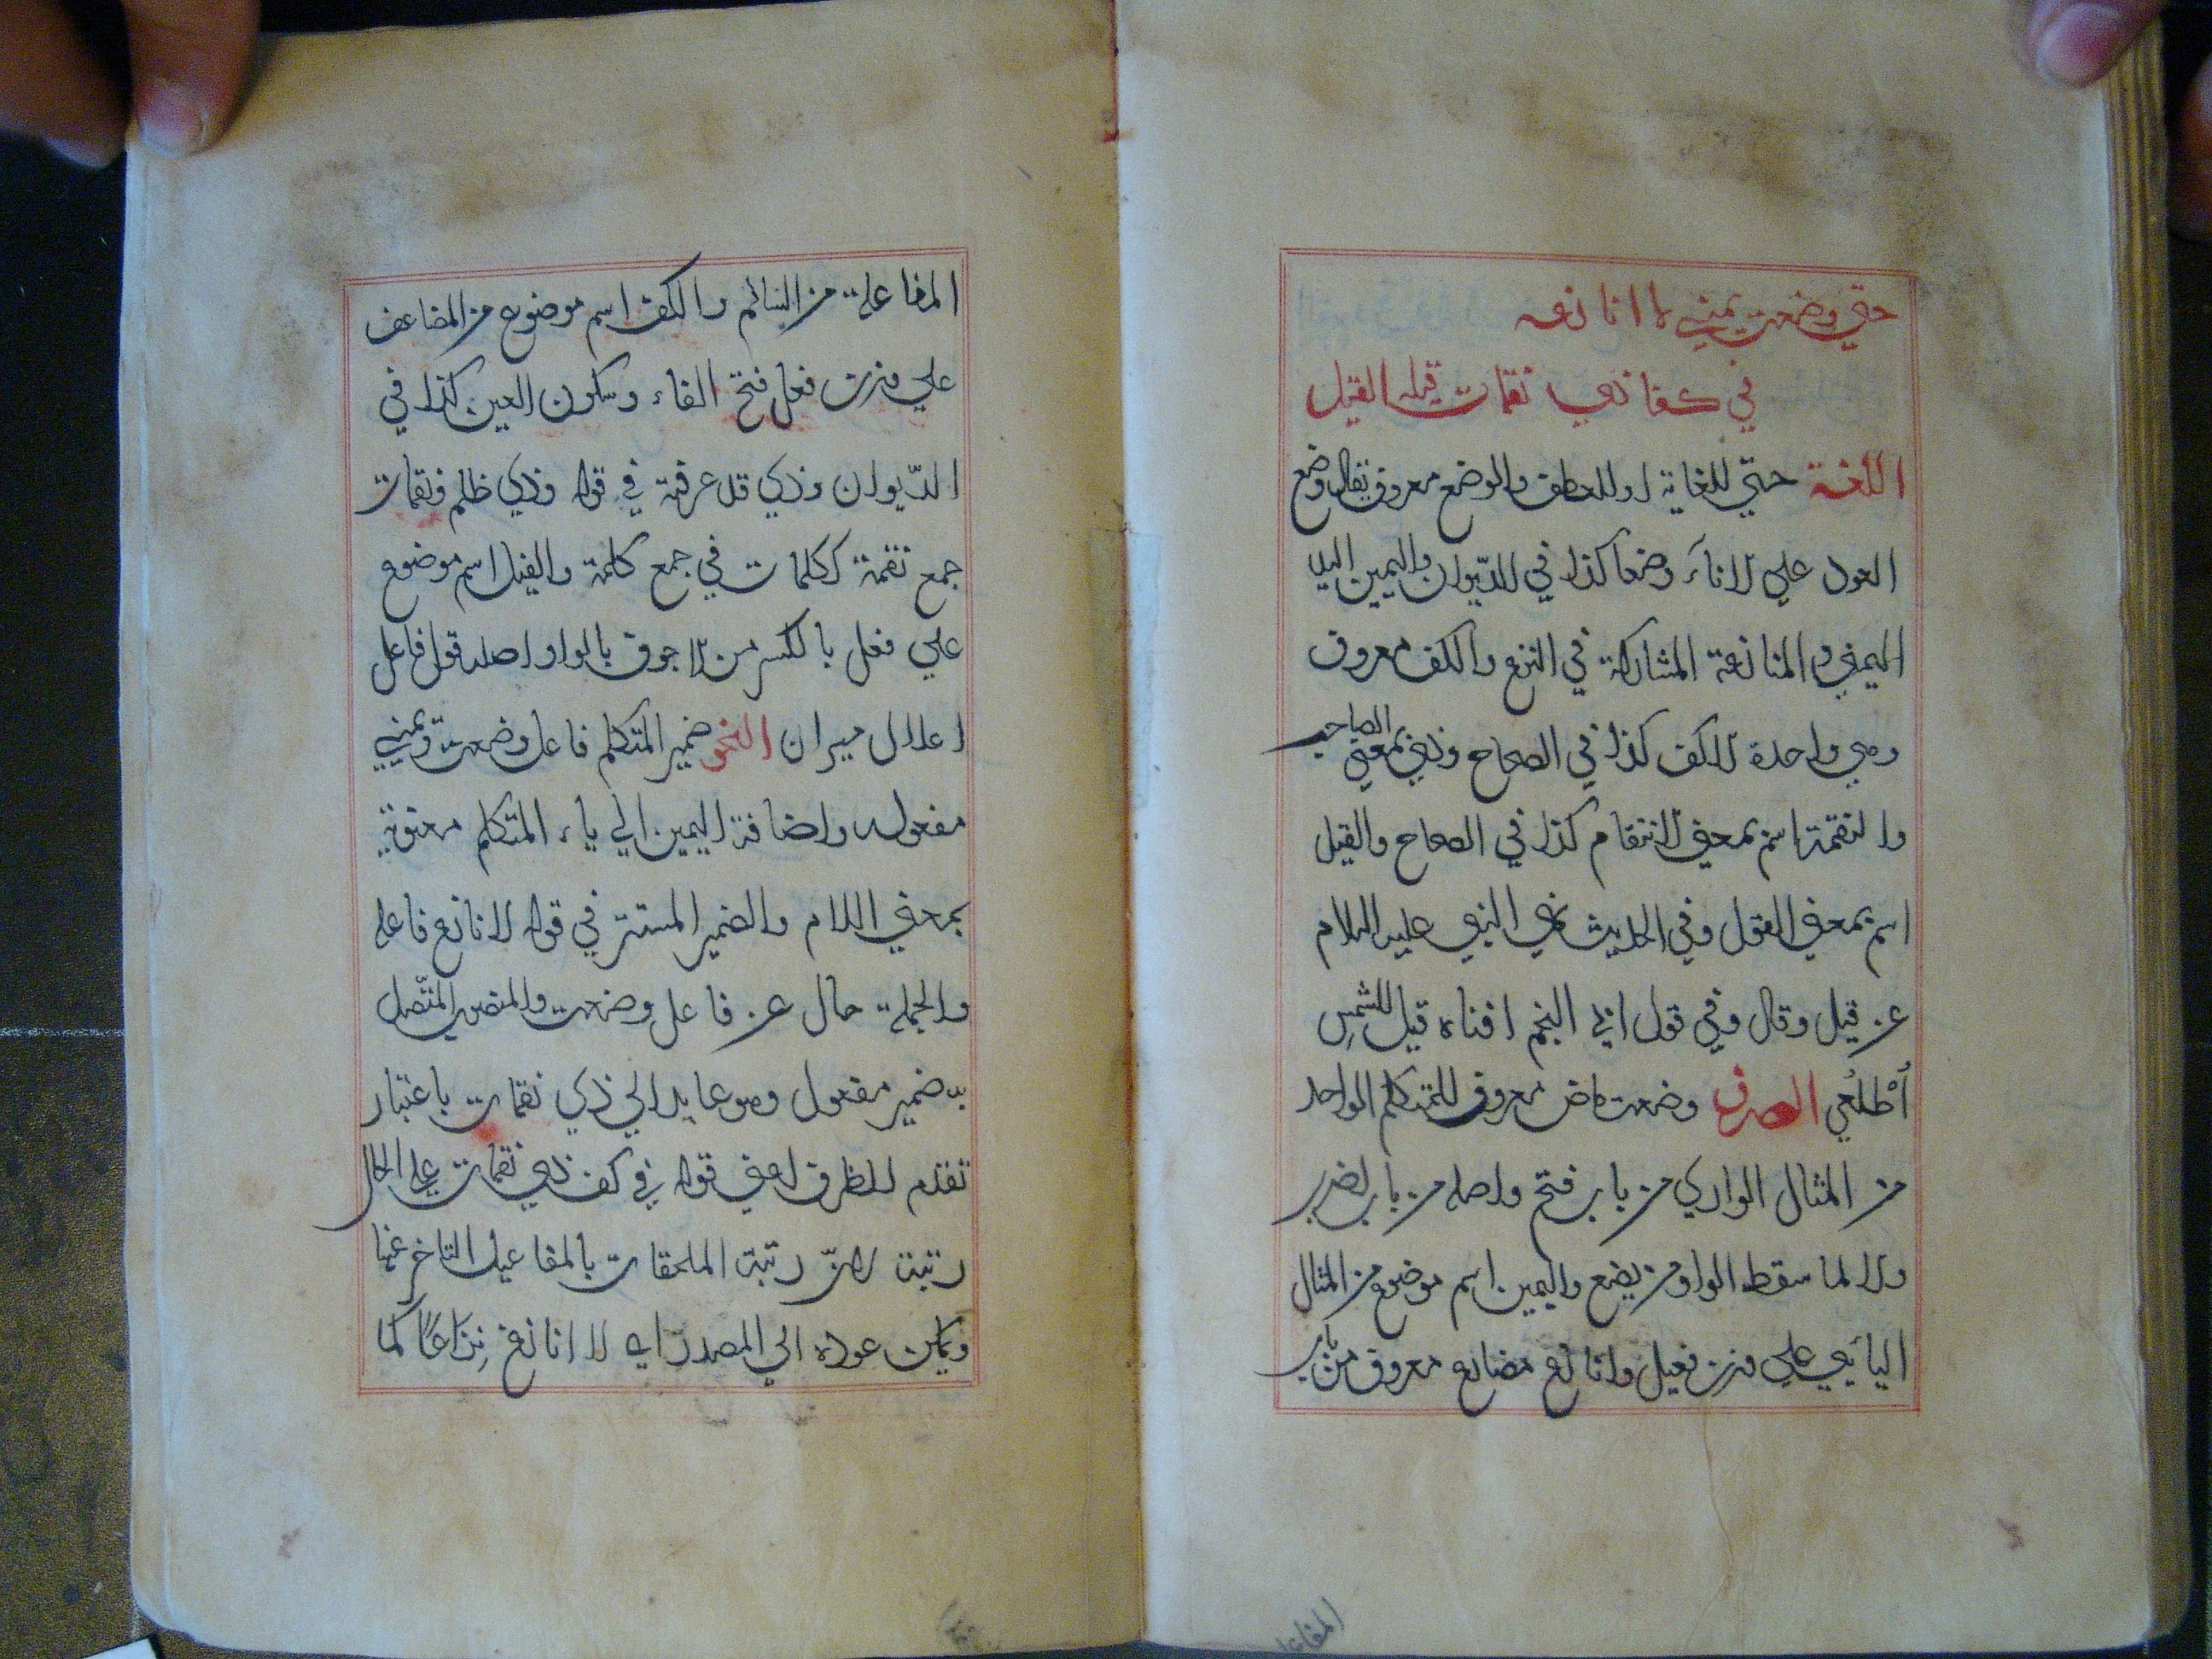 حتى وضعت يميني لا انازعه
في كف ذي نقمات قيله القيل
اللغة حتي للغاية او للعطف والوضع معروف يقال وضع
العود علي الاناء وضعا كذا في الديوان واليمين اليد
اليمني والمنازعة المشاركة في النزع والكف معروف
وهي واحدة الاكف كذا في الصحاح وذي بمعني الصاحب
والنقمة اسم بمعني الانتقام كذا في الصحاح والقيل
اسم بمعني القول وفي الحديث نهي النبي عليه السلام
عن قيل وقال وفي قول ابي النجم افناه قيل للشمس
أُطْلُعي الصرف وضعت ماض معروف للمتكلم الواحد
من المثال الواوي من باب فتح واصله من باب ضرب
والا لما سقط الواو من يضع واليمين اسم موضوع من المثال
اليايي علي وزن فعيل وانازع مضارع معروف من باب
المفاعلة
المفاعلة من السالم والكف اسم موضوع من المضاعف
علي وزن فعل فتح الفاء وسكون العين كذا في
الديّوان وذي قد عرفته في قوله وذي ظلم ونقمات
جمع نقمة ككلمات في جمع كلمة والقيل اسم موضوع
علي فعل بالكسر من الاجوف بالواو اصله قول فاعل
اعلال ميزان النحو ضمير المتكلم فاعل وضعت ويميني
مفعوله واضافة اليمين الي ياء المتكلم معنوية
بمعني اللام والضمير المستتر في قوله لا انازع فاعله
والجملة حال عن فاعل وضعت والمنصوب المتّصل
به ضمير مفعول وهو عايد الي ذي نقمات باعتبار
تقدم الظرف اعني قوله في كف ذي نقمات علي الحال
رتبة لانّ رتبة الملحقات بالمفاعيل التاخر عنها
ويمكن عوده الي المصدر اي لا انازع نِزَاعًا كما